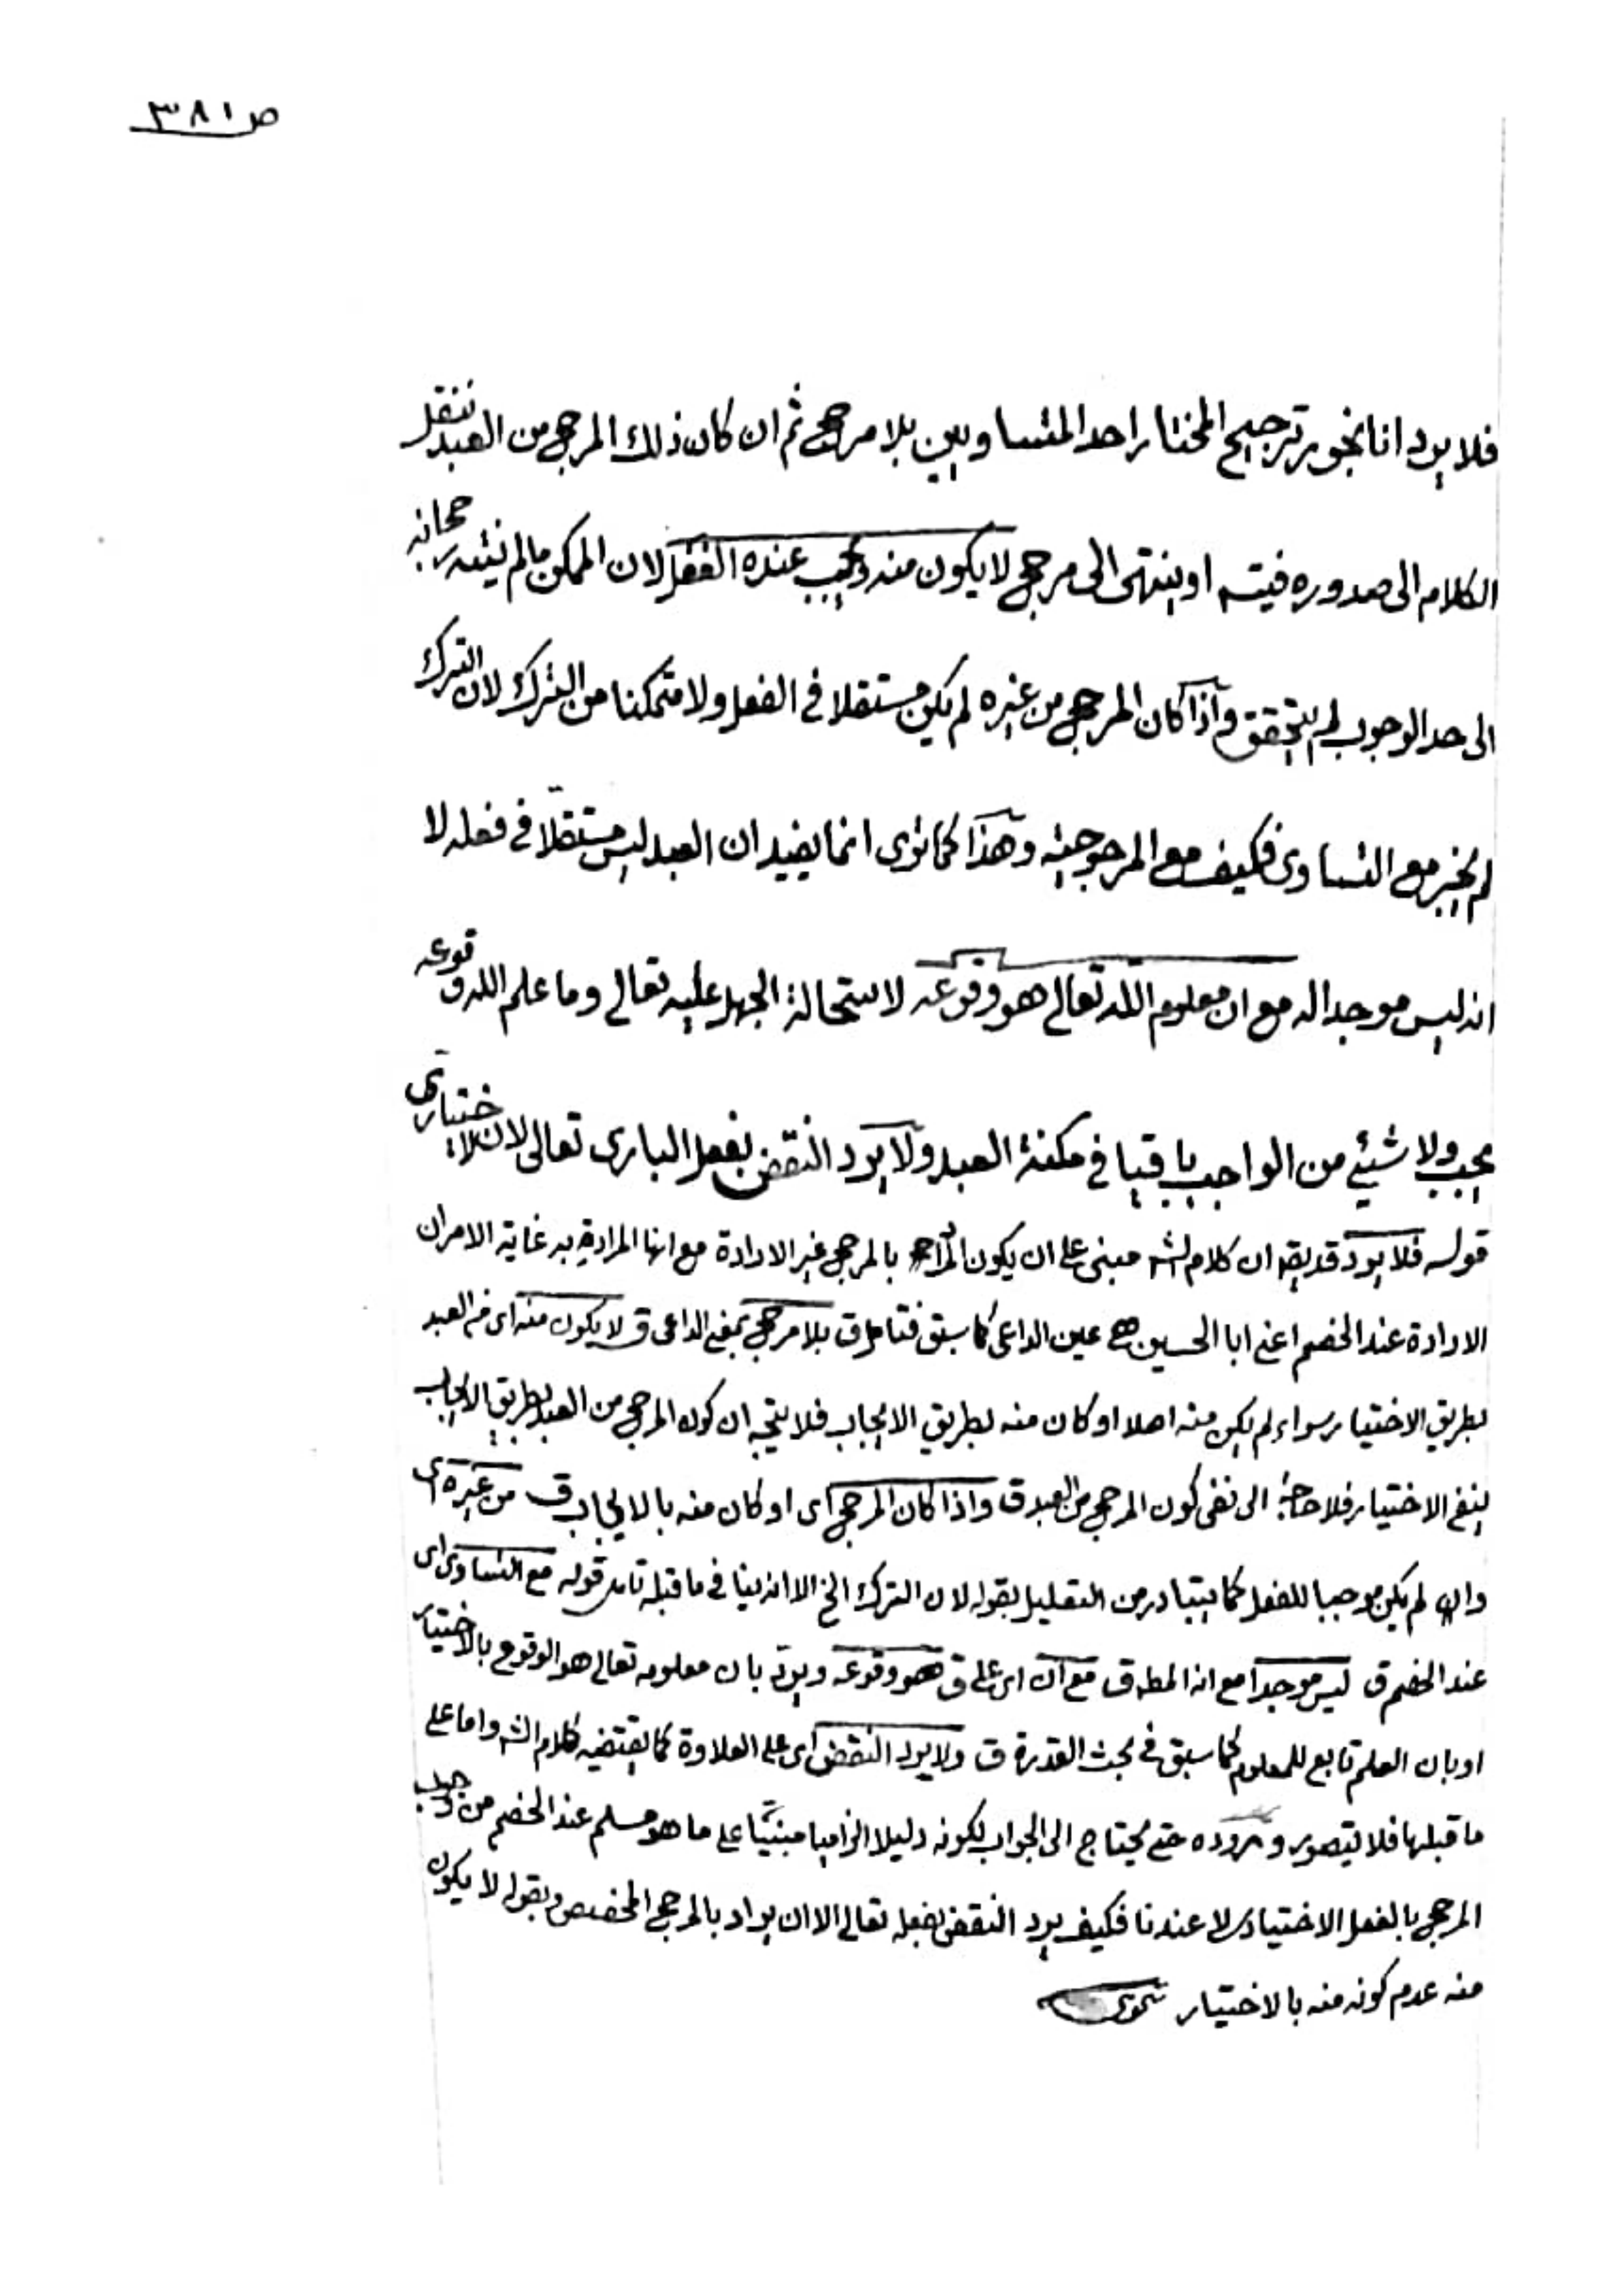 ص ٣٨١
فلا يرد انا نجوز ترجيح المختار احد المتساويين بلا مرجح ثم ان كان ذلك المرجح من العبد ننقل
الكلام الى صدوره فيتم او ينتهى الى مرجح لا يكون منه ويجب عنده الفعل لان الممكن مالم ينته رجحانه
الى حد الوجوب لم يتحقق واذا كان المرجح من غيره لم يكن مستقلا فى الفعل ولا متمكنا من الترك لان الترك
لم يجز مع التساوى فكيف مع المرجوحية وهذا كما ترى انما يفيد ان العبد ليس مستقلا فى فعله لا
انه ليس موجدا له مع ان معلوم الله تعالى هو وقوعه لاستحالة الجهل عليه تعالى وما علم الله وقوعه
يجب ولا شيئ من الواجب باقيا فى مكنة العبد ولا يرد النقض بفعل البارى تعالى لان الاختيارى
قوله فلا يرد قد يق ان كلام الش مبنى على ان يكون المراد بالمرجح غير الارادة مع انها المرادة به غاية الامر ان
الارادة عند الخصم اعنى ابا الحسين هى عين الداعى كما سبق فتامل ق بلا مرجح بمعنى الداعى ق لا يكون منه اى من العبد
بطريق الاختيار سواء لم يكن منه اصلا او كان منه بطريق الايجاب فلا يتجه ان كون المرجح من العبد بطريق الايجاب
ينفى الاختيار فلا حاجة الى نفى كون المرجح من العبد ق واذا كان المرجح اى او كان منه بالايجاب ق من غيره اى
وان لم يكن موجبا للفعل كما يتبادر من التعليل بقوله لان الترك الخ الا انه ينافى ما قبله تامل قوله مع التساوى اى
عند الخصم ق ليس موجدا مع انه المط ق مع ان اى على ق هو وقوعه ويرد بان معلومه تعالى هو الوقوع بالاختيار
او بان العلم تابع للمعلوم كما سبق فى بحث القدرة ق ولا يرد النقض اى على العلاوة كما يقتضيه كلام الش واما على
ما قبلها فلا يتصور وروده حتى يحتاج الى الجواب لكونه دليلا الزاميا مبنيا على ما هو مسلم عند الخصم من وجوب
المرجح بالفعل الاختيارى لا عندنا فكيف يرد النقض بفعله تعالى الا ان يراد بالمرجح المخصص وبقوله لا يكون
منه عدم كونه منه بالاختيار